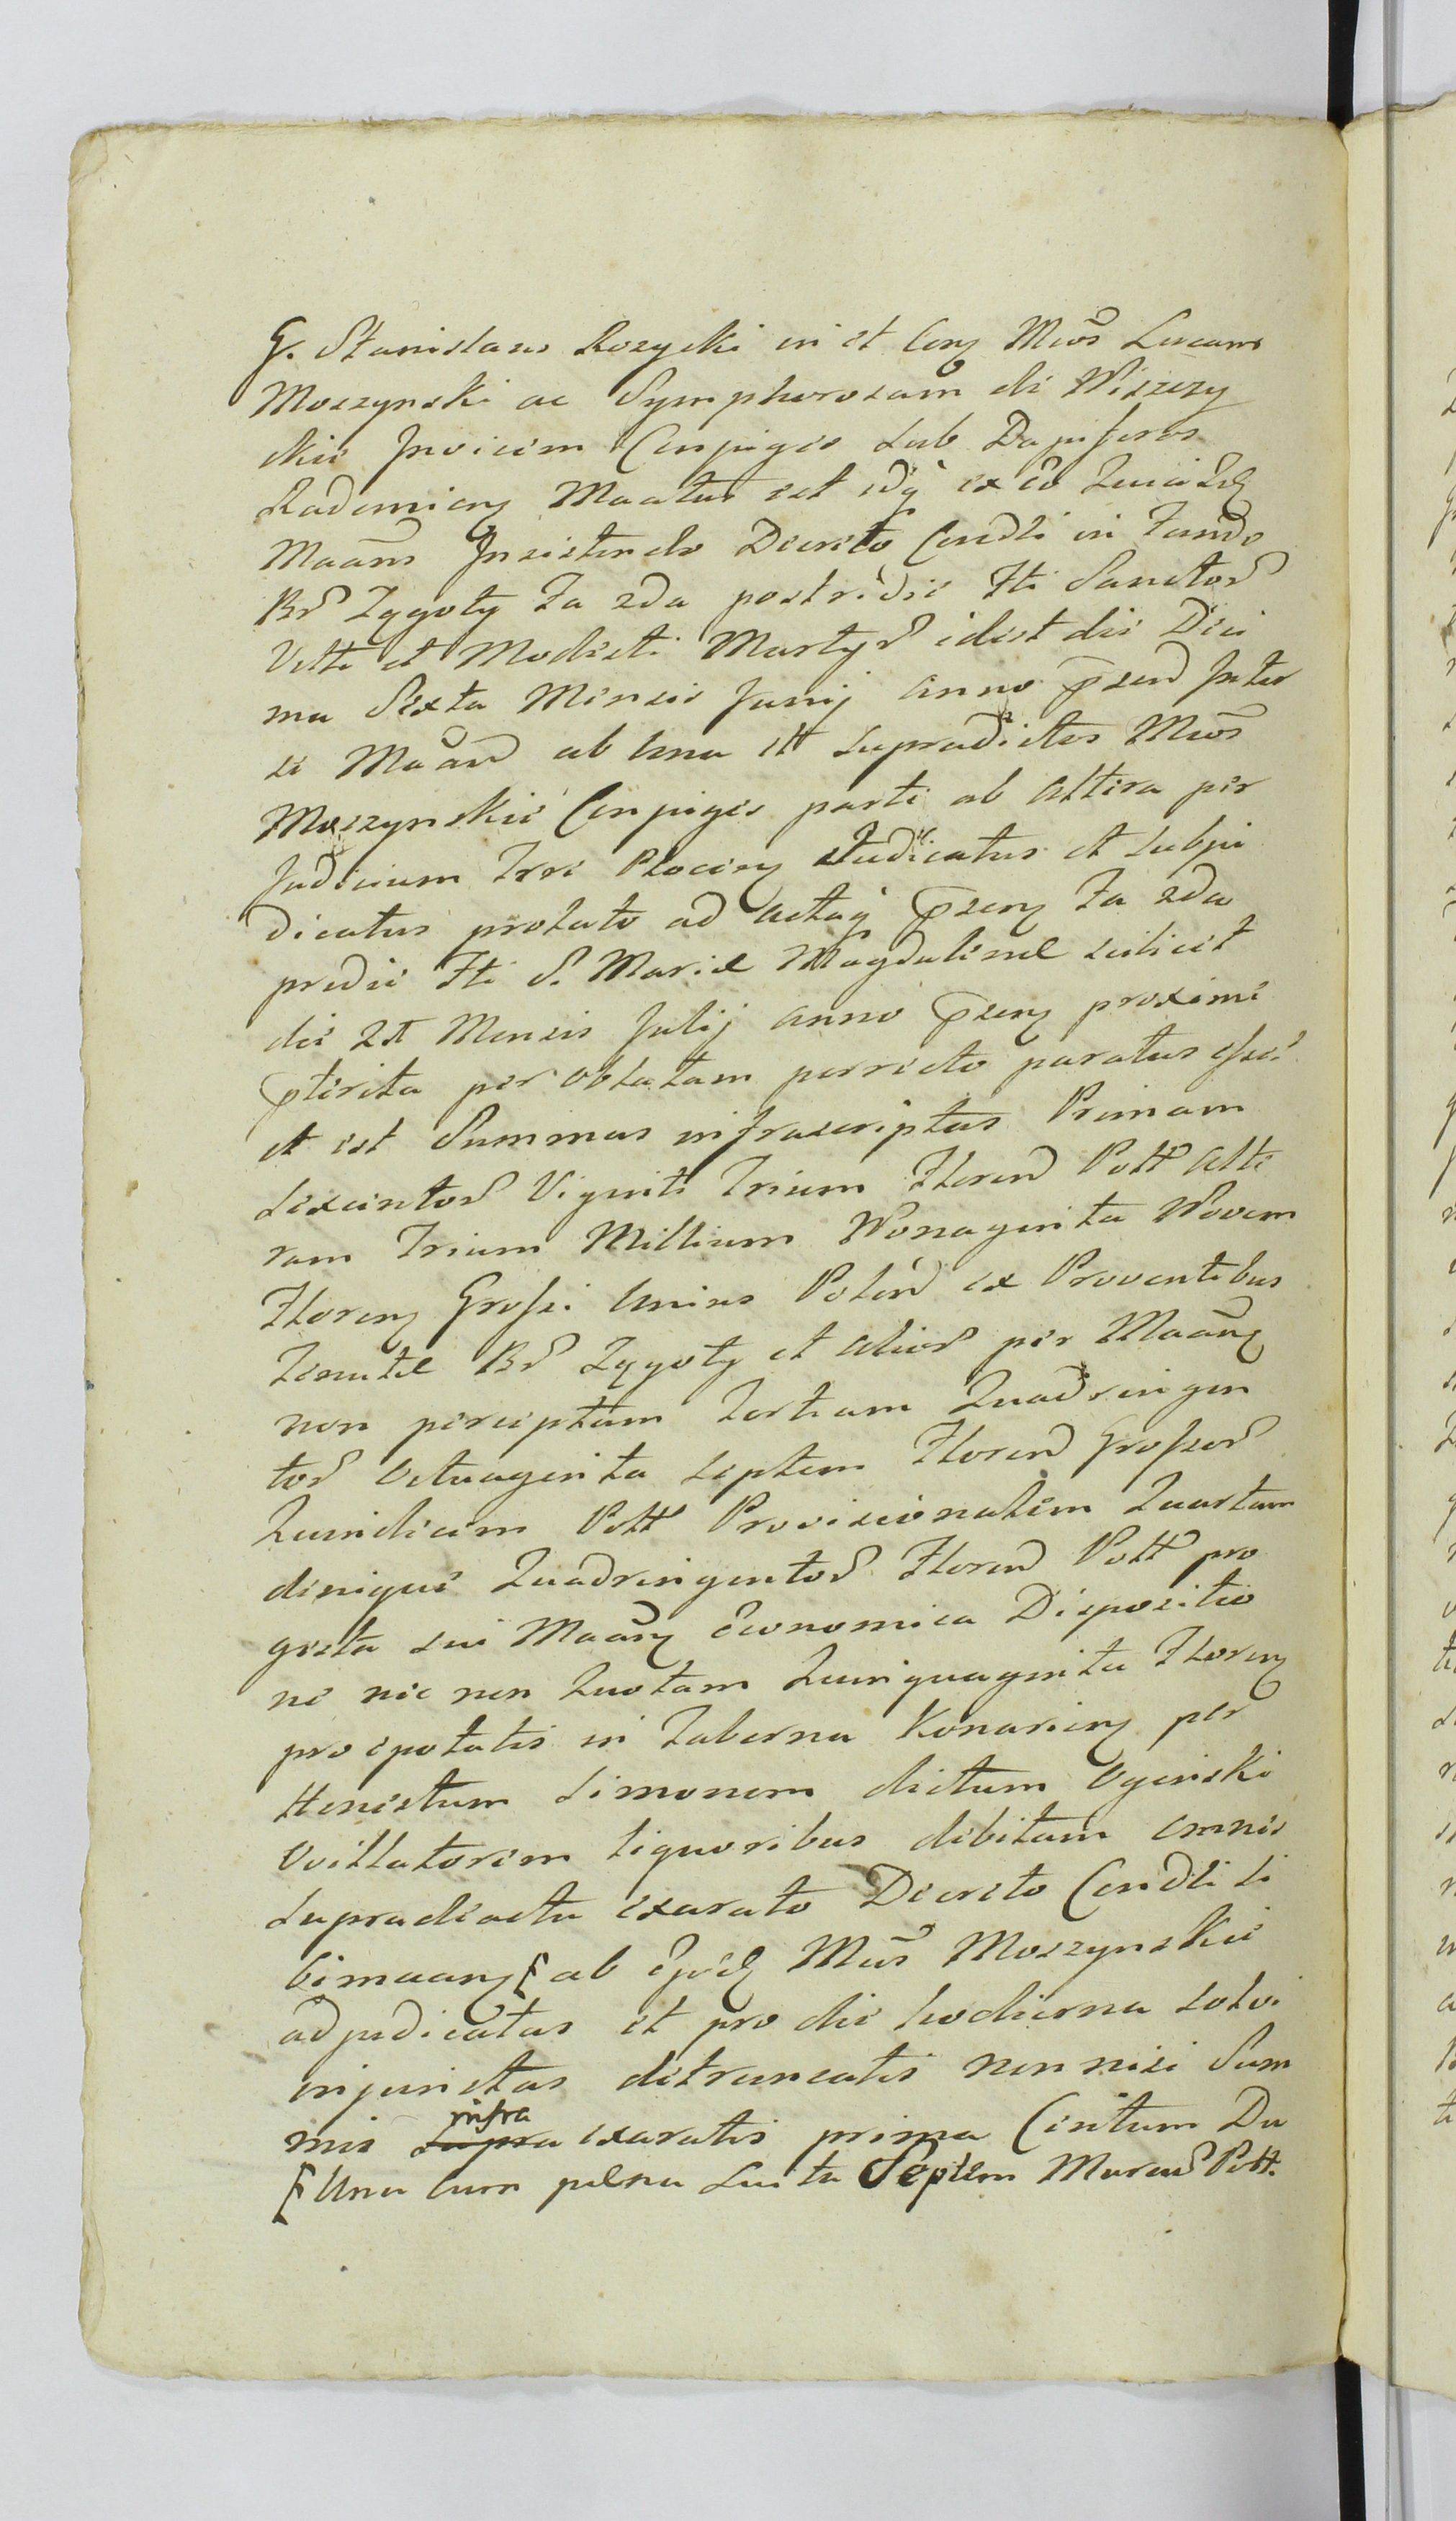 G. Stanislaus Rozycki in et Con͠ Mcos Lucam
Moszynski ac Symphorosam de Wiszczy
ckie Invicem Conjuges Sub Dapiferos
Radomien͠ Maatus est idq ex eo Quia Idem
Maans Insistendo Decreto Condli in Fundo
Br Zągoty Fa 2da postridie Fti Sanctor
Viti et Modesti Martyr idest die Deci
ma Sexta Mensis Junij anno psen Inter
se Maan ab una et Supradictos Mcos
Moszynskie Conjuges parte ab altera per
Judicium Trre Plocen͠ Judicatus et Subju
dicatus prolato ad actaq psen͠ Fa 2da
pridie Fti S. Mariæ Magdalenæ scilicet
die 21 Mensis Julij anno psen͠ proxime
pterita per oblatam porrecto paratus esse
et est Summas infrascriptas Primam
Sexcentor Viginti Trium Floren Poll Alte
ram Trium Millium Nonaginta Novem
Floren͠ Grossi Unius Polon ex Proventibus
Tenutæ Br Zągoty et alior per Maan͠
non perceptam Tertiam Quadringen
tor Octuaginta Septem Floren Grossor
Quindecim Poll Provisionalem Quartam
denique Quadringentor Floren Poll pro
gesta sui Maan͠ Economica Dispositio
ne nec non Quotam Quinquaginta Floren͠
pro epotatis in Taberna Konarien͠ per
Honestum Simonem dictum Oginski
Ovillatorem liquoribus debitam omnes
Supradicto exarato Decreto Condli si
bimaan͠ ab Mcis Moszynskie
adjudicatas et pro die hodierna solvi
injunctas detruncatis non nisi Sum
mis supra infra exaratis prima Centum Du
Una cum pæna Luita Septem Marcar Poll.